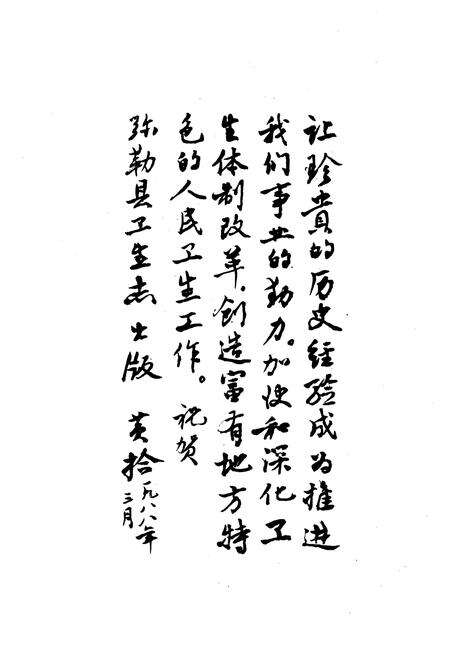 让珍贵的历史经验成为推进
我们事业的动力。加快和深化卫
生体制改革，创造富有地方特
色的人民卫生工作。祝贺
弥勒县卫生志出版 黄拾
一九八八年
三月